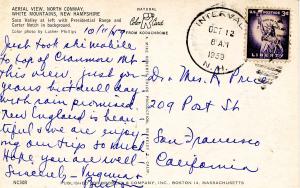 AERIAL VIEW, NORTH CONWAY,
WHITE MOUNTAINS, NEW HAMPSHIRE
Saco Valley at left with Presidential Range and
Carter Notch in background.
Color photo by Luther Phillips
10/11/59
Just took ski mobile
to top of Cranmore Mt
this view. Just gor-
geous but dull day
with rain promised.
New England is beau-
tiful & we are enjoy-
ing our trip so much
Hope you are well-
Sincerely -
NATURAL
Color Card
FROM KODACHROME
INTERVALE
OCT 12
8 AM
N.H.
3¢
LIBERTY
Dr + Mrs. R Price
209 Post St
San Francisco
California
NC308
PUBLISHED BY COMPANY, INC., BOSTON 14, MASSACHUSETTS